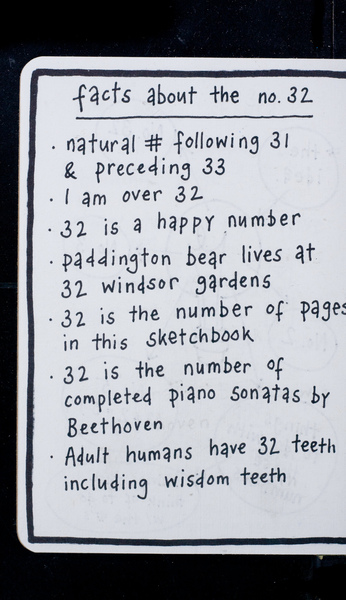 facts about the no. 32
· natural # following 31
& preceding 33
· I am over 32
· 32 is a happy number
· paddington bear lives at
32 windsor gardens
· 32 is the number of pages
in this sketchbook
· 32 is the number of
completed piano sonatas by
Beethoven
· Adult humans have 32 teeth
including wisdom teeth